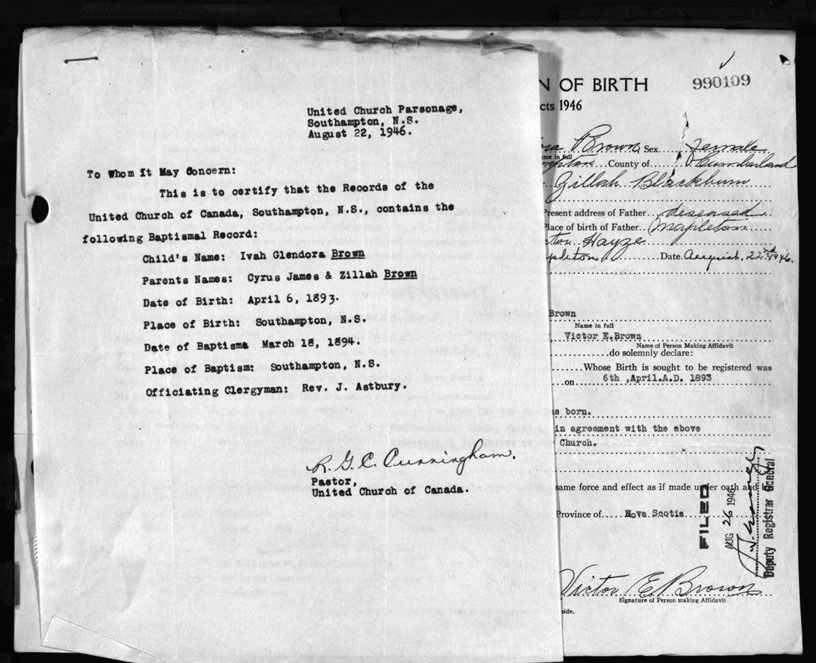 United Church Parsonage,
Southampton, N.S.
August 22, 1946.
To Whom it May Concern:
This is to certify that the Records of the
United Church of Canada, Southampton, N.S., contains the
following Baptismal Record:
Child's Name: Ivah Glendora Brown
Parents Names: Cyrus James & Zillah Brown
Date of Birth: April 6, 1893.
Place of Birth: Southampton, N.S.
Date of Baptism: March 18, 1894.
Place of Baptism: Southampton, N.S.
Officiating Clergyman: Rev. J. Astbury.
R. G. C. Cunningham.
Pastor,
United Church of Canada.
N OF BIRTH 990109
cts 1946
Brown Sex Female
me in full
County of Cumberland
Zillah Blackburn
Present address of Father deceased
Place of birth of Father Mapleton
Hayze
pleton Date August, 22nd 1946.
Brown
Name in full
Victor E.Brown
Name of Person Making Affidavit
do solemnly declare:
Whose Birth is sought to be registered was
on 6th ,April.A.D. 1893
s born.
in agreement with the above
Church.
same force and effect as if made under oath and
Province of Nova Scotia
FILED
AUG 26 1946
Deputy Registrar General
Victor E. Brown
Signature of Person making Affidavit
side.